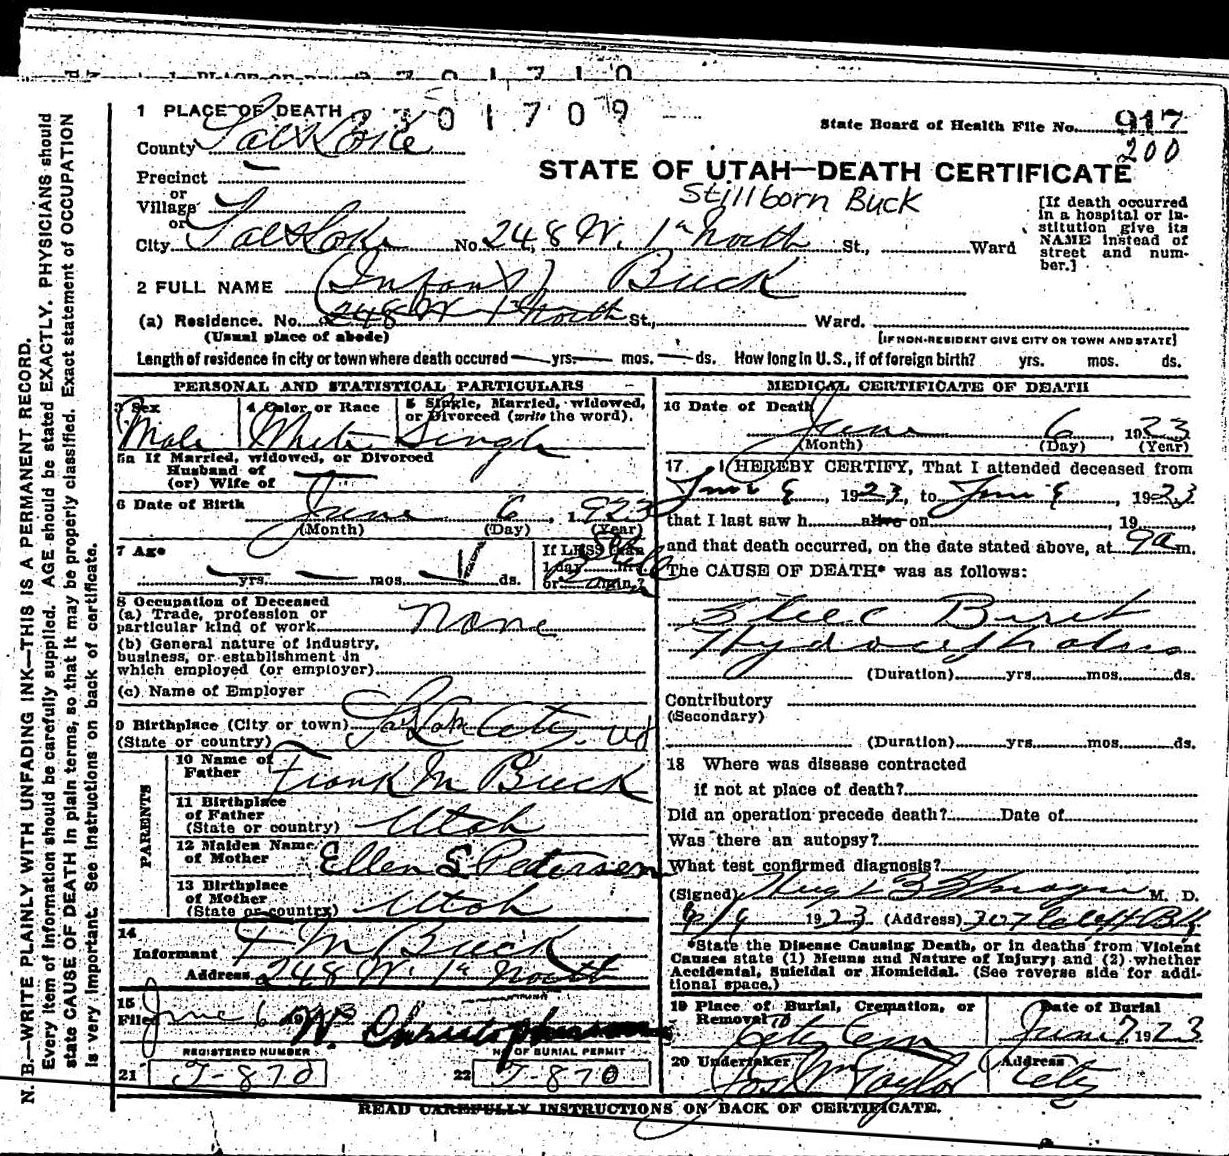 1 PLACE OF DEATH 2301709
State Board of Health File No. 917
County Salt Lake 200
STATE OF UTAH—DEATH CERTIFICATE
Precinct
or
Village
Stillborn Buck
or
City Salt Lake No. 248 W. 1st North St., Ward
[If death occurred
in a hospital or in-
stitution give its
NAME instead of
street and num-
ber.]
2 FULL NAME (Infant) Buck
(a) Residence. No. 248 W 1st North St., Ward.
(Usual place of abode) [IF NON-RESIDENT GIVE CITY OR TOWN AND STATE]
Length of residence in city or town where death occured yrs. mos. ds. How long in U. S., if of foreign birth? yrs. mos. ds.
PERSONAL AND STATISTICAL PARTICULARS
3 Sex
Male
4 Color or Race
White
5 Single, Married, widowed,
or Divorced (write the word).
Single
5a If Married, widowed, or Divorced
Husband of
(or) Wife of
6 Date of Birth June 6, 1923
(Month) (Day) (Year)
7 Age
yrs. mos. ds.
If LESS than
1 day
or min.?
8 Occupation of Deceased
(a) Trade, profession or
particular kind of work None
(b) General nature of industry,
business, or establishment in
which employed (or employer)
(c) Name of Employer
9 Birthplace (City or town) Salt Lake City, Ut
(State or country)
PARENTS
10 Name of
Father Frank M Buck
11 Birthplace
of Father
(State or country) Utah
12 Maiden Name
of Mother Ellen S Petersen
13 Birthplace
of Mother
(State or country) Utah
14
Informant F M Buck
Address 248 W. 1st North
15
Filed June 6 W. Christopherson
REGISTERED NUMBER
21 J-870
NO OF BURIAL PERMIT
22 J-870
MEDICAL CERTIFICATE OF DEATH
16 Date of Death
June 6, 1923
(Month) (Day) (Year)
17 I HEREBY CERTIFY, That I attended deceased from
June 6, 1923, to June 6, 1923
that I last saw h alive on , 19 ,
and that death occurred, on the date stated above, at 9 a m.
The CAUSE OF DEATH* was as follows:
Still Birth
Hydrocephalus
(Duration) yrs. mos. ds.
Contributory
(Secondary)
(Duration) yrs. mos. ds.
18 Where was disease contracted
if not at place of death?
Did an operation precede death? Date of
Was there an autopsy?
What test confirmed diagnosis?
(Signed) Hugh B Sprague M. D.
1923 (Address)
*State the Disease Causing Death, or in deaths from Violent
Causes state (1) Means and Nature of Injury; and (2) whether
Accidental, Suicidal or Homicidal. (See reverse side for addi-
tional space.)
19 Place of Burial, Cremation, or
Removal City Cem
Date of Burial
June 7, 1923
20 Undertaker
Jos Wm Taylor
Address
City
READ CAREFULLY INSTRUCTIONS ON BACK OF CERTIFICATE.
N. B.—WRITE PLAINLY WITH UNFADING INK—THIS IS A PERMANENT RECORD.
Every item of information should be carefully supplied. AGE should be stated EXACTLY. PHYSICIANS should
state CAUSE OF DEATH in plain terms, so that it may be properly classified. Exact statement of OCCUPATION
is very important. See instructions on back of certificate.